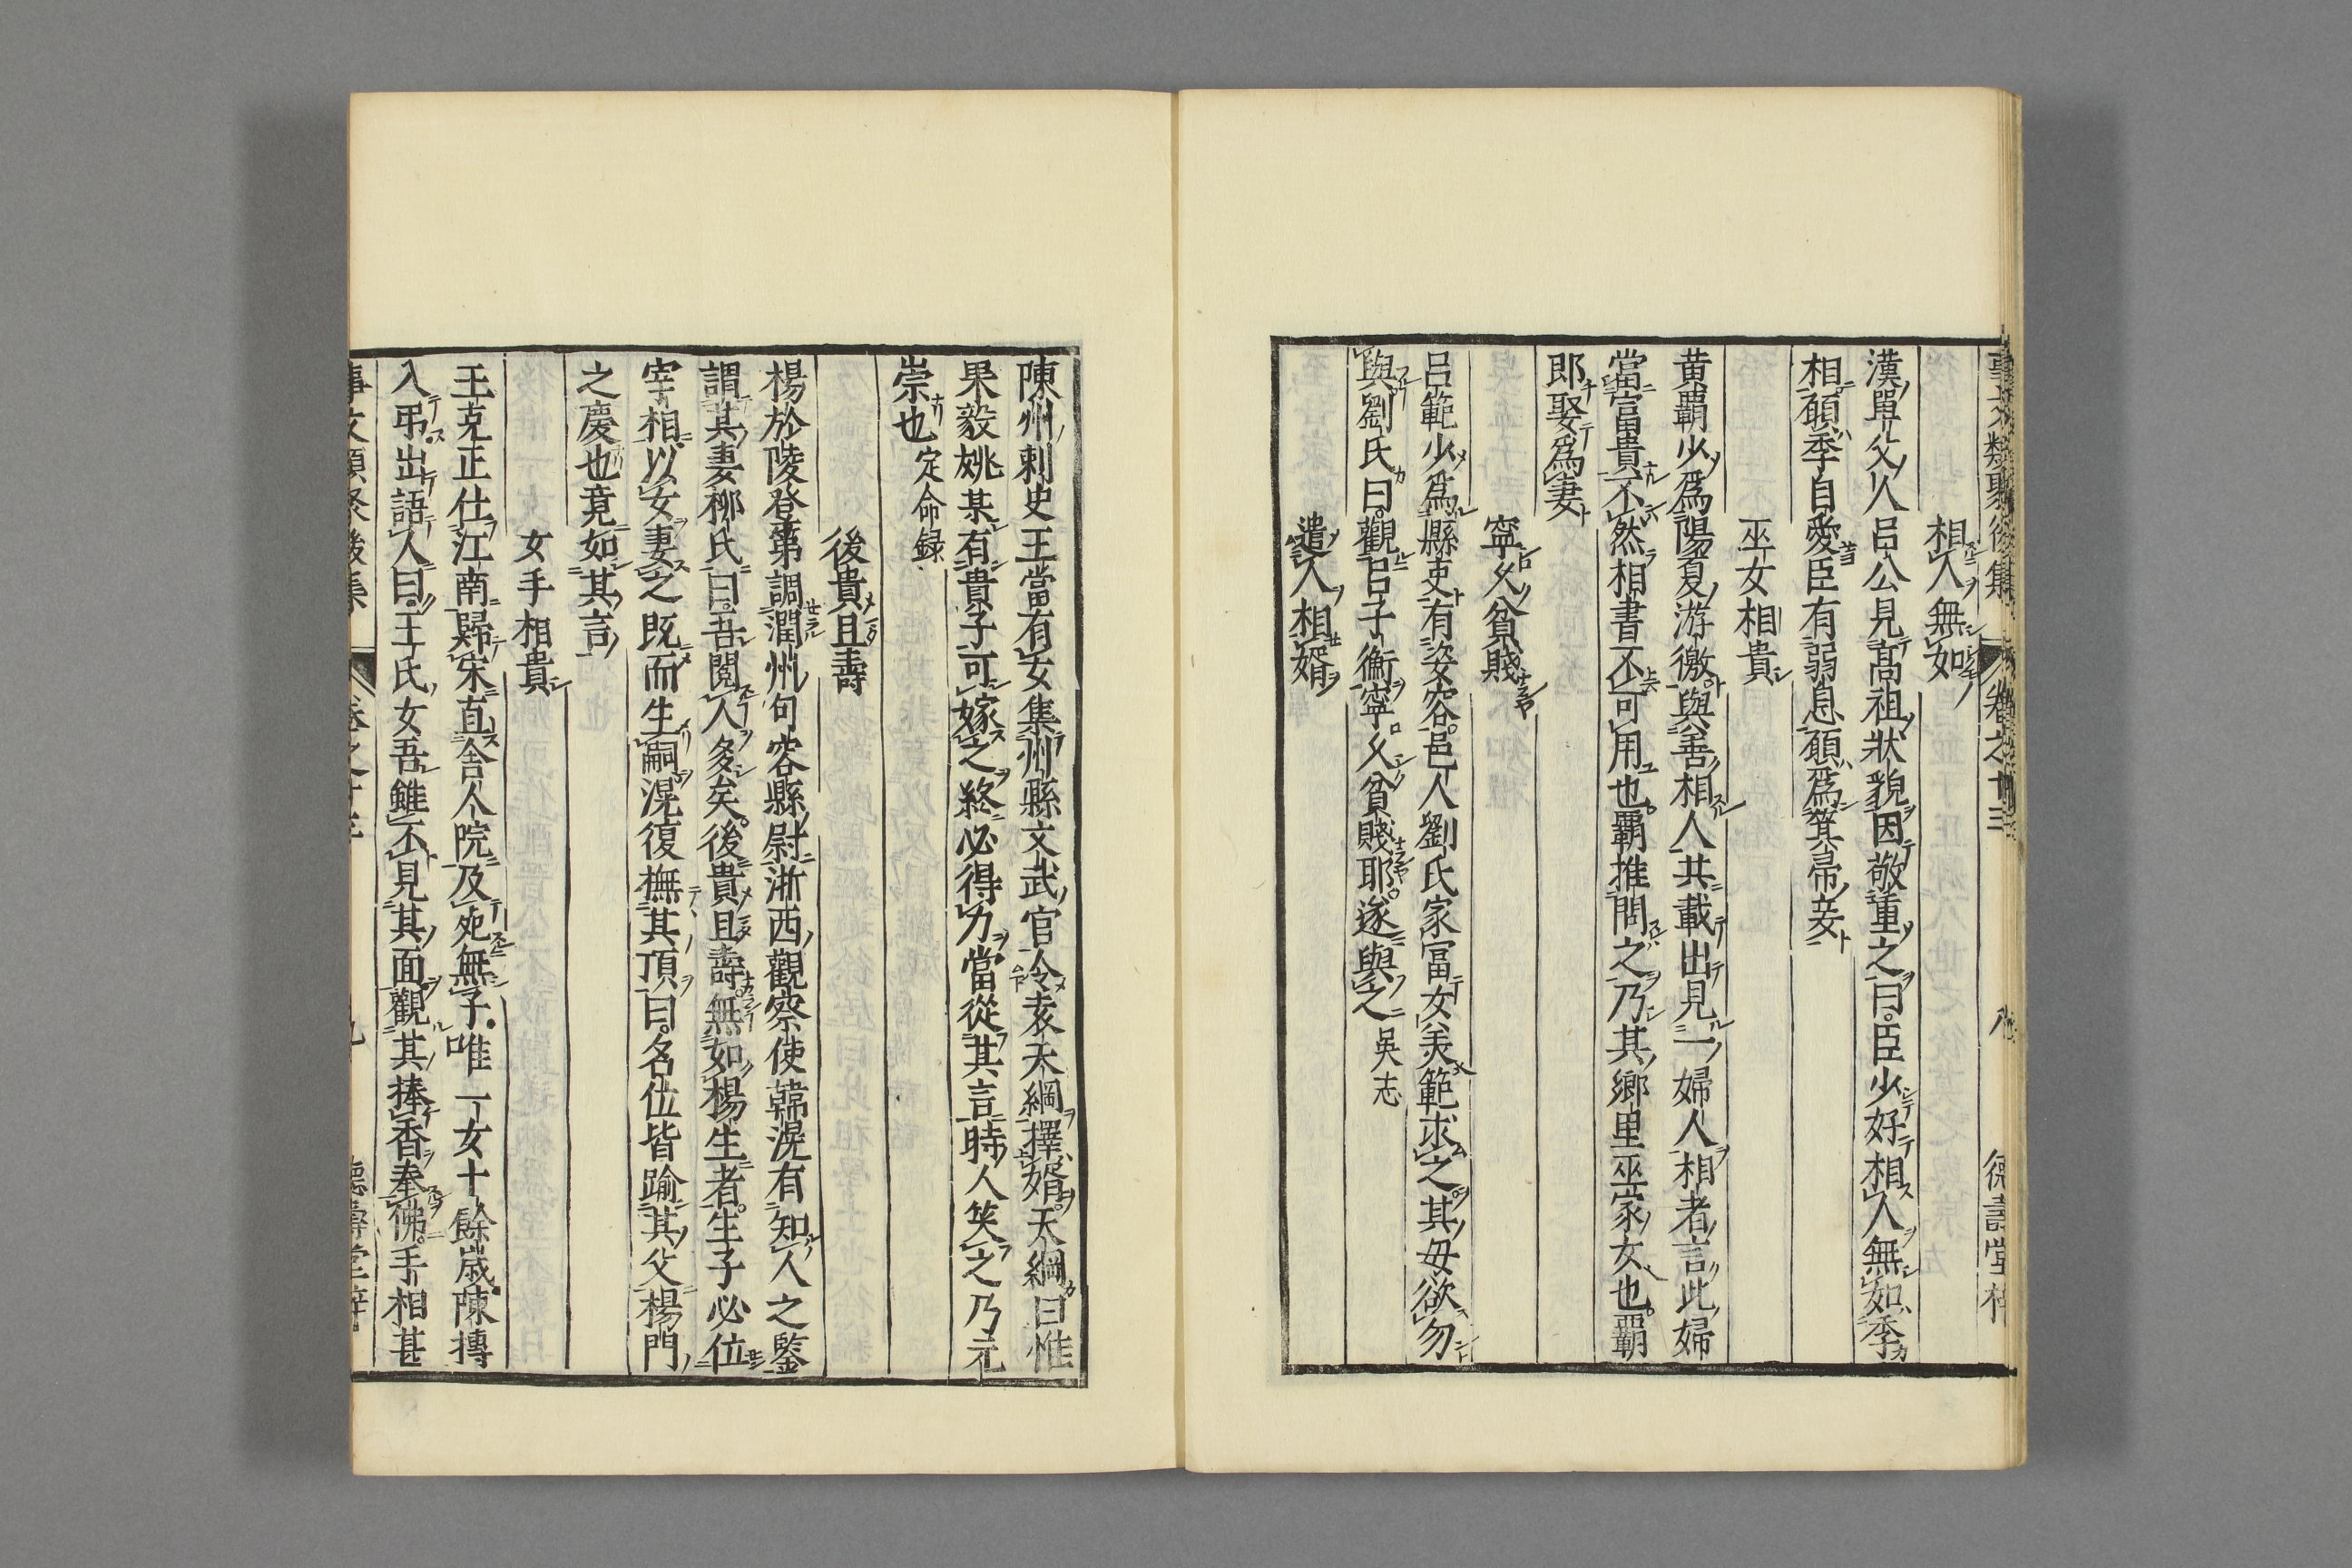 事文類聚後集 卷之十三 八 德壽堂梓
相人無如
漢單父人呂公見高祖狀貌因敬重之曰臣少好相人無如季
相願季自愛臣有弱息願爲箕帚妾
巫女相貴
黄覇少爲陽夏游徼與善相人共載出見一婦人相者言此婦
當富貴不然相書不可用也覇推問之乃其鄉里巫家女也覇
即娶爲妻
寧久貧賤
呂範少爲縣吏有姿容邑人劉氏家富女美範求之其母欲勿
與劉氏曰觀呂子衡寧久貧賤耶遂與之 吳志
遣人相婿
陳州刺史王當有女集州縣文武官令袁天綱擇婿天綱曰惟
果毅姚某有貴子可嫁之終必得力當從其言時人笑之乃元
崇也 定命録
後貴且壽
楊於陵登第調潤州句容縣尉浙西觀察使韓滉有知人之鑒
謂其妻柳氏曰吾閲人多矣後貴且壽無如楊生者生子必位
宰相以女妻之既而生嗣滉復撫其頂曰名位皆踰其父楊門
之慶也竟如其言
女手相貴
王克正仕江南歸宋直舍人院及死無子唯一女十餘歳陳摶
入弔出語人曰王氏女吾雖不見其面觀其捧香奉佛手相甚
事文類聚後集 卷之十三 九 德壽堂梓